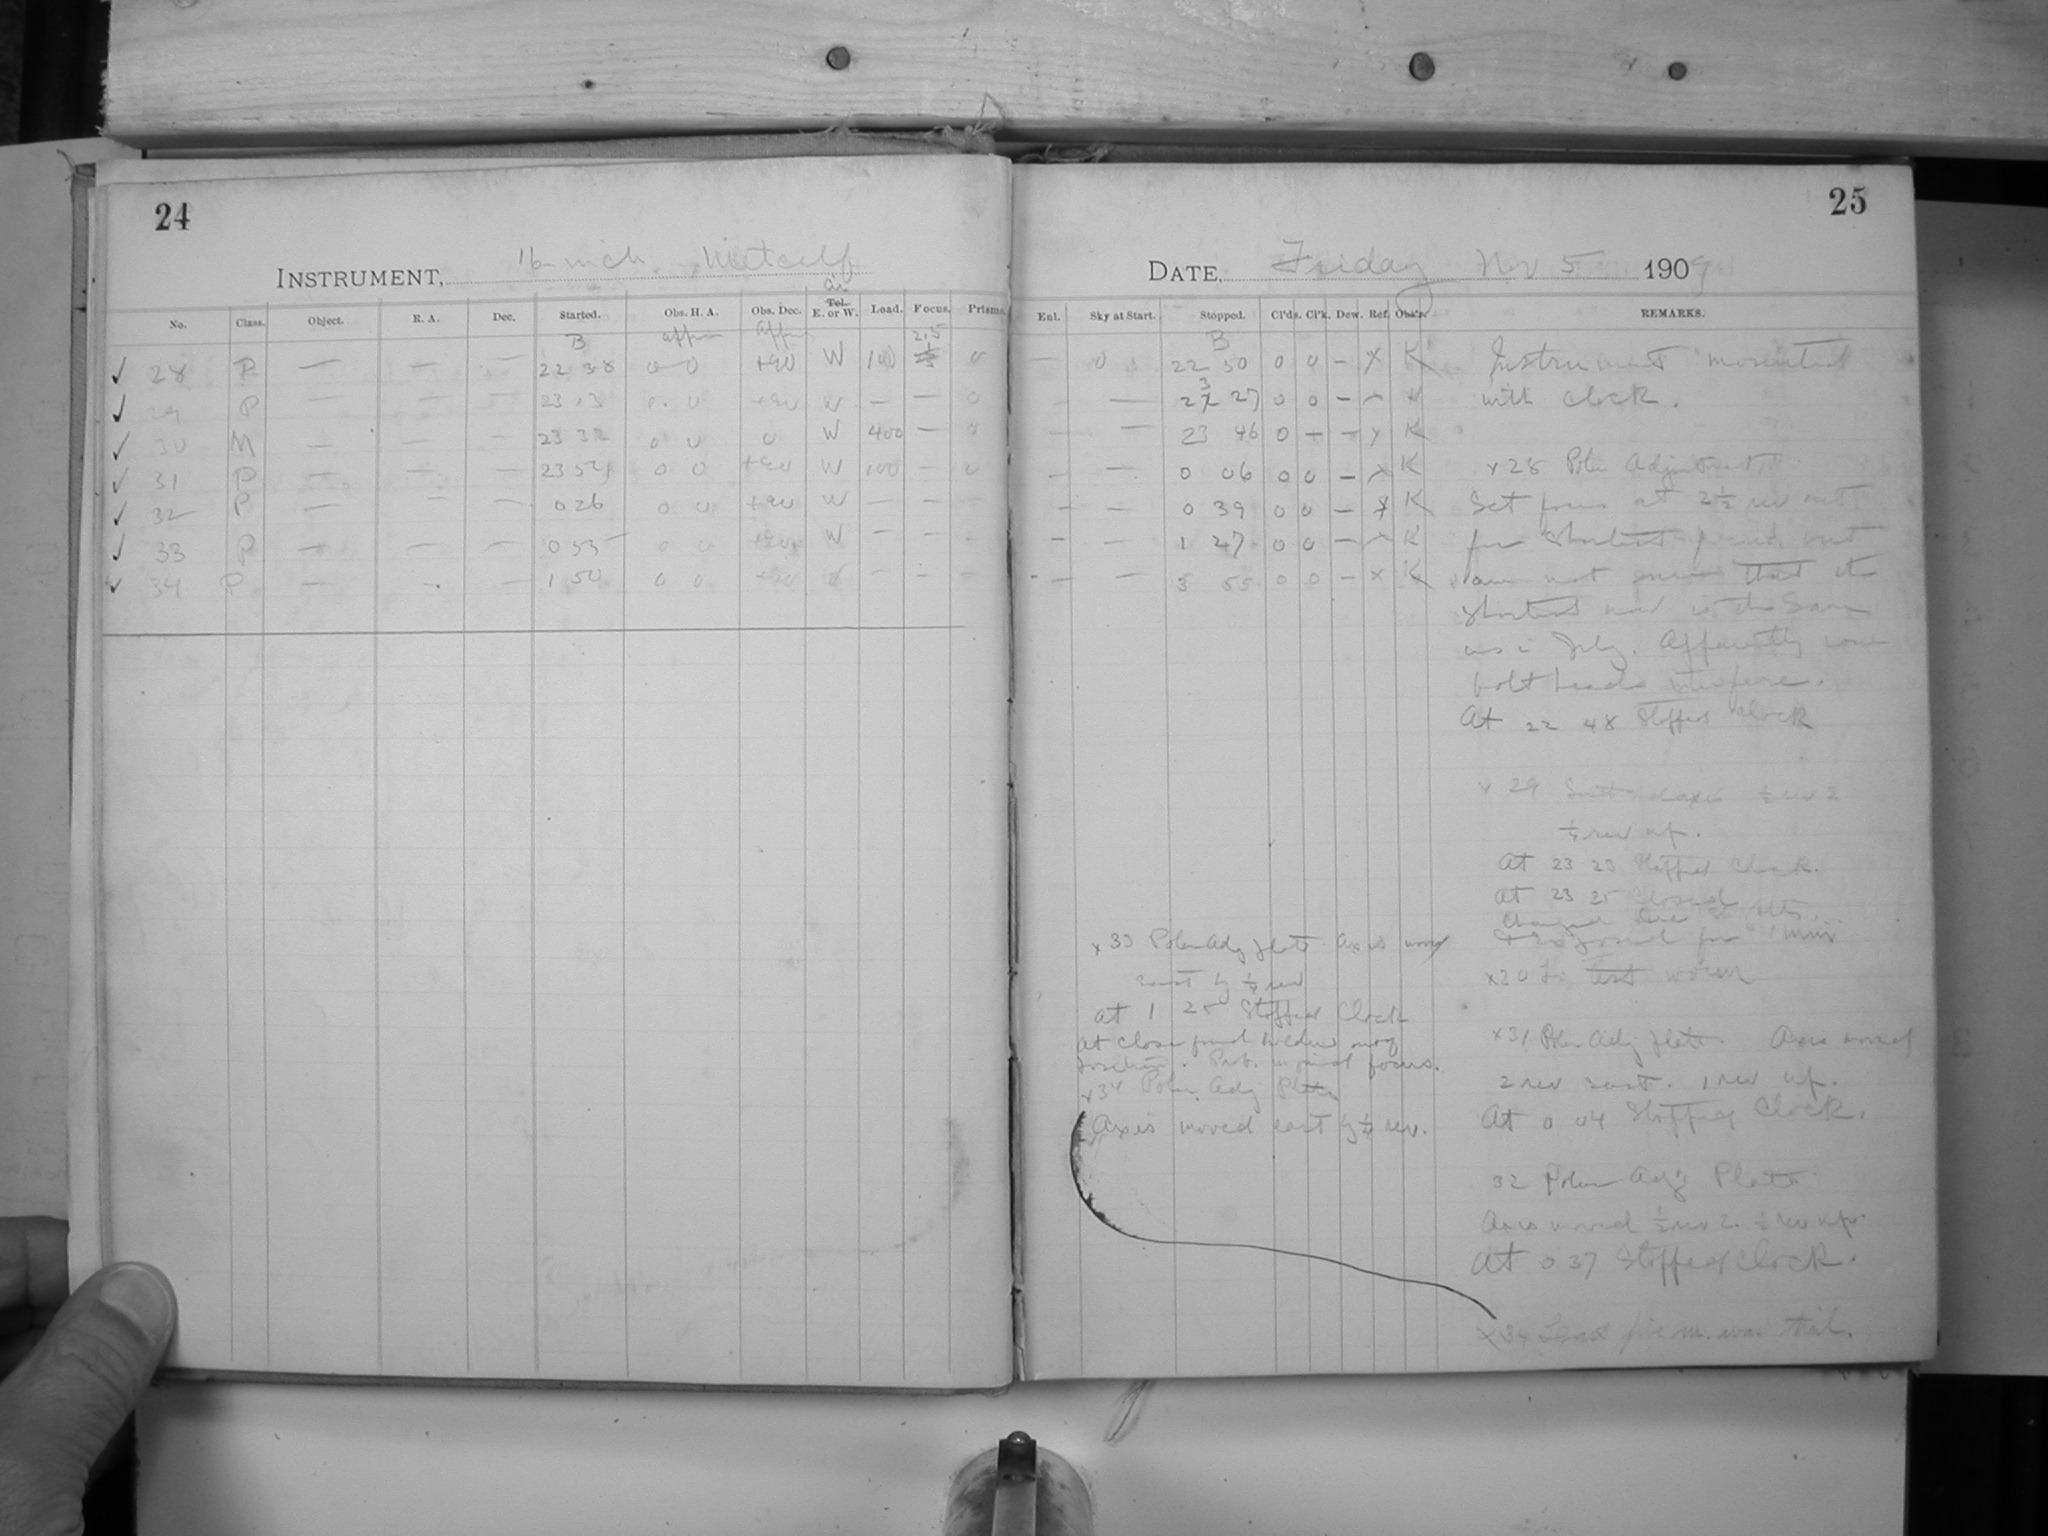 24
INSTRUMENT, 16-inch Metcalf
No. Class. Object. R. A. Dec. Started. Obs. H. A. Obs. Dec. Tel. E. or W. Load. Focus. Prisms.
B 2.5
✓ 28 P — — — 22 38 0 0 +90 W 100 0
✓ 29 P — — — 23 13 0 0 +90 W — — 0
✓ 30 M — — — 23 32 0 0 0 W 400 — 0
✓ 31 P — — — 23 54 0 0 +90 W 100 — 0
✓ 32 P — — — 0 26 0 0 +90 W — — —
✓ 33 P — — — 0 55 0 0 +90 W — — —
✓ 34 P — — — 1 50 0 0 +90 W — — —
25
DATE, Friday Nov 5 1909
Enl. Sky at Start. Stopped. Cl'ds. Cl'k. Dew. Ref. Obs'r. REMARKS.
B
— 0 22 50 0 0 — x K
— — 23 27 0 0 — K
— — 23 46 0 — — x K
— — 0 06 0 0 — x K
— — 0 39 0 0 — x K
— — 1 27 0 0 — K
— — 3 55 0 0 — x K
Instrument
with clock.
x28 Polar Adjustment
Set focus at 2½ rev
for shortest
am not sure that the
shortest now is the same
as in July. Apparently some
bolt heads interfere.
At 22 48 Stopped Clock
x 29
¼ rev up.
At 23 23 Stopped Clock.
At 23 25 Closed
Changed
+ exposed for 1 min
x30 To test worm
x31 Polar Adj plate. Axis moved
2 rev east. 1 rev up.
At 0 04 Stopped Clock.
32 Polar Adj Plate
Axis moved ½ rev ½ rev up.
At 0 37 Stopped Clock.
x33 Polar Adj plate Axis moved
east by ¼ rev
at 1 25 Stopped Clock
at close found holder out of
position. Prob. in focus.
x34 Polar Adj Plate
Axis moved east by ¼ rev.
x34 Last five m. was trail.